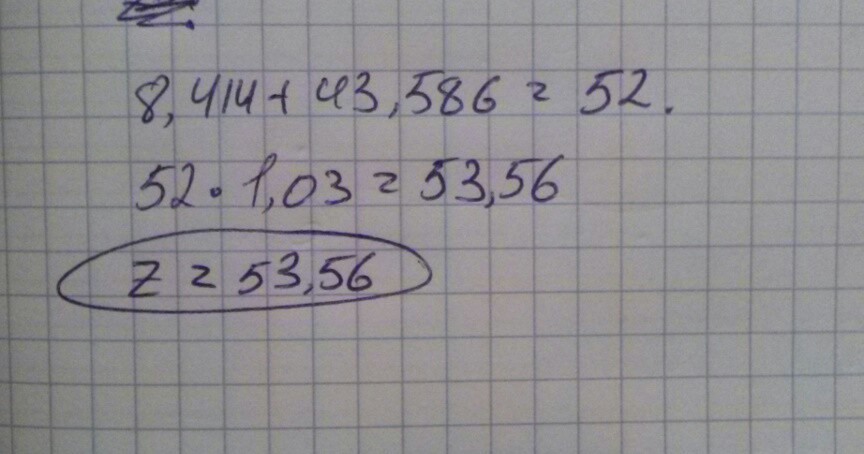 8,414 + 43,586 = 52.
52 · 1,03 = 53,56
z = 53,56